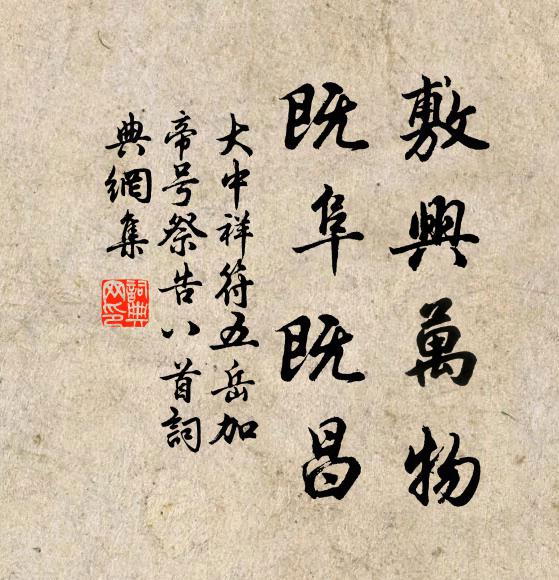 敷興萬物
既阜既昌
大中祥符五岳加
帝号祭告八首詞
典網集
詞典網印